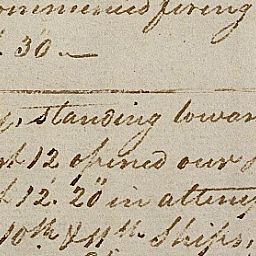 commenced firing
30 —
standing towar
12 opened our
12. 20" in attemp
10th & 11th Ships,